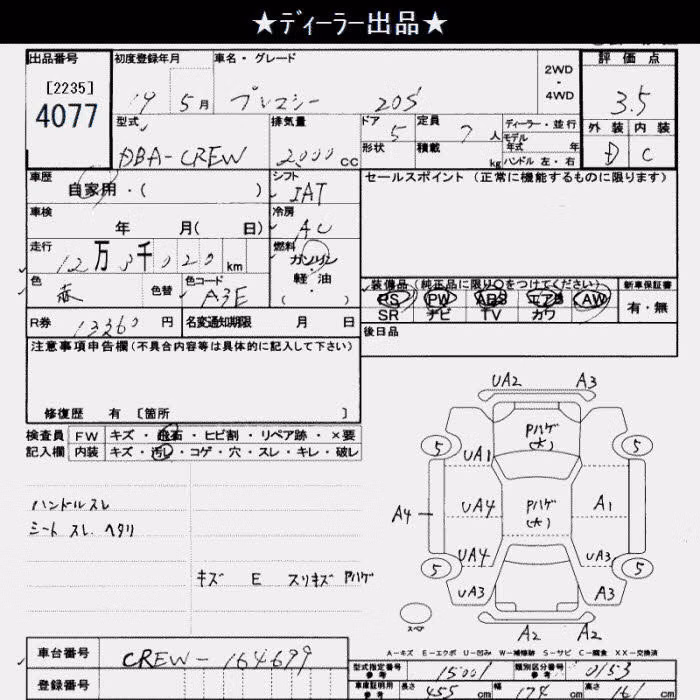 ★ディーラー出品★
出品番号
[2235]
4077
初度登録年月
19 5月
車名・グレード
プレマシー 20S
2WD
・
4WD
評価点
3.5
外装 内装
D C
型式
DBA-CREW
排気量
2000 cc
ドア 5
形状
定員 7 人
積載 kg
ディーラー・並行
モデル
年式 年
ハンドル 左・右
車歴
自家用・( )
シフト
IAT
車検
年 月( 日)
冷房
AC
走行
12万3千020km
燃料
ガソリン
軽・油
( )
色
赤
色替
色コード
A3E
R券
13360円
名変通知期限 月 日
セールスポイント(正常に機能するものに限ります)
装備品(純正品に限り○をつけてください)
PS PW ABS エアB AW
SR ナビ TV カワ
新車保証書
有・無
後日品
注意事項申告欄(不具合内容等は具体的に記入して下さい)
修復歴 有 [箇所 ]
検査員
記入欄
FW キズ・飛石・ヒビ割・リペア跡・×要
内装 キズ・汚れ・コゲ・穴・スレ・キレ・破レ
ハンドルスレ
シート スレ. ヘタリ
キズ E スリキズ Pハゲ
UA2 A3
Pハゲ
(大)
5 5
UA1
A4 UA4
Pハゲ
(大)
A1
UA4 UA3
5 5
UA3 A3
A2 A2
スペア
A-キズ E-エクボ U-凹み W-補修跡 S-サビ C-腐食 XX-交換済
車台番号
CREW-164699
登録番号
型式指定番号
参考
15001
類別区分番号
参考
0153
車庫証明用
参考
長さ 455 cm
幅 174 cm
高さ 161 cm